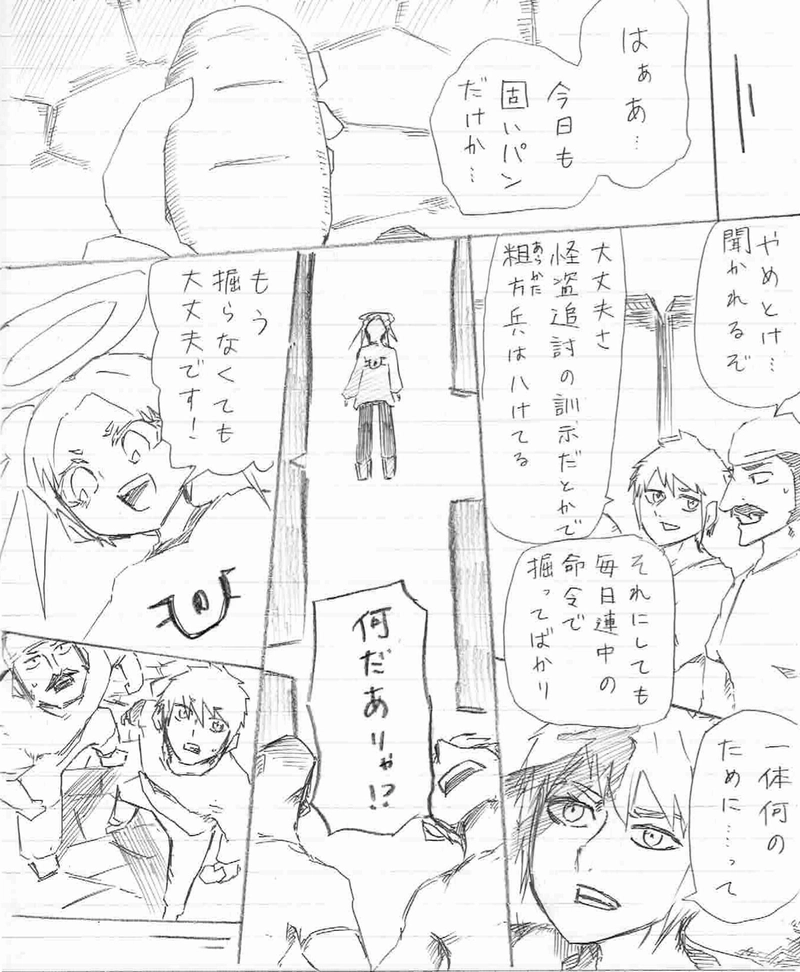 はぁあ…
今日も
固いパン
だけか…
やめとけ…
聞かれるぞ
大丈夫さ
怪盗追討の訓示だとかで
粗方兵はハけてる
あらかた
それにしても
毎日連中の
命令で
掘ってばかり
一体何の
ために……って
何だありゃ!?
もう
掘らなくても
大丈夫です!